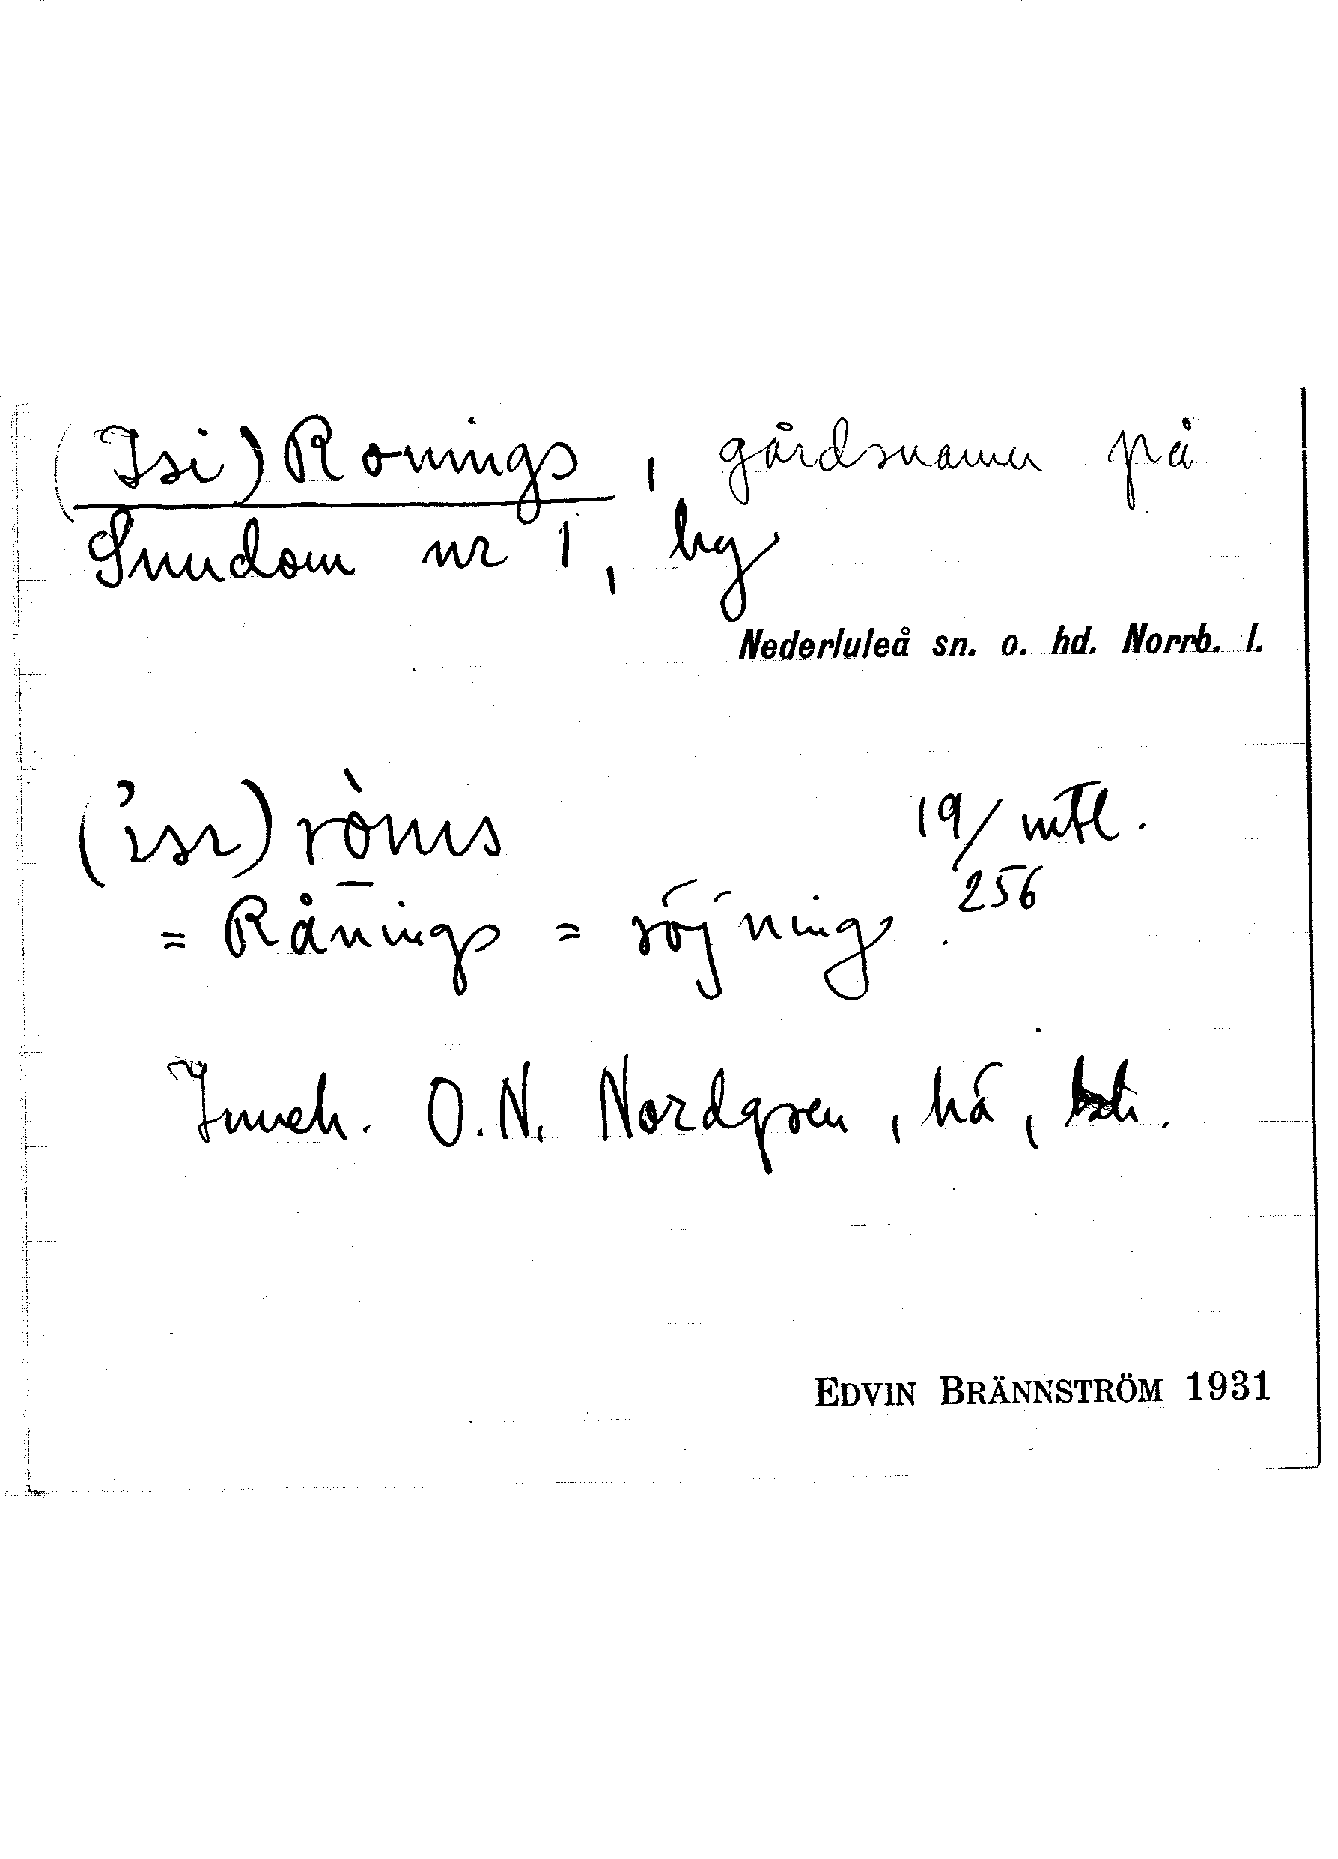 (Isi)Ronings, gårdsnamn på
Sundom nr 1, by
Nederluleå sn. o. hd. Norrb. l.
('ısı) ròṉıs 19/256 mtl.
= Rånings = röjning.
Inneh. O.N. Nordgren, hä,
EDVIN BRÄNNSTRÖM 1931